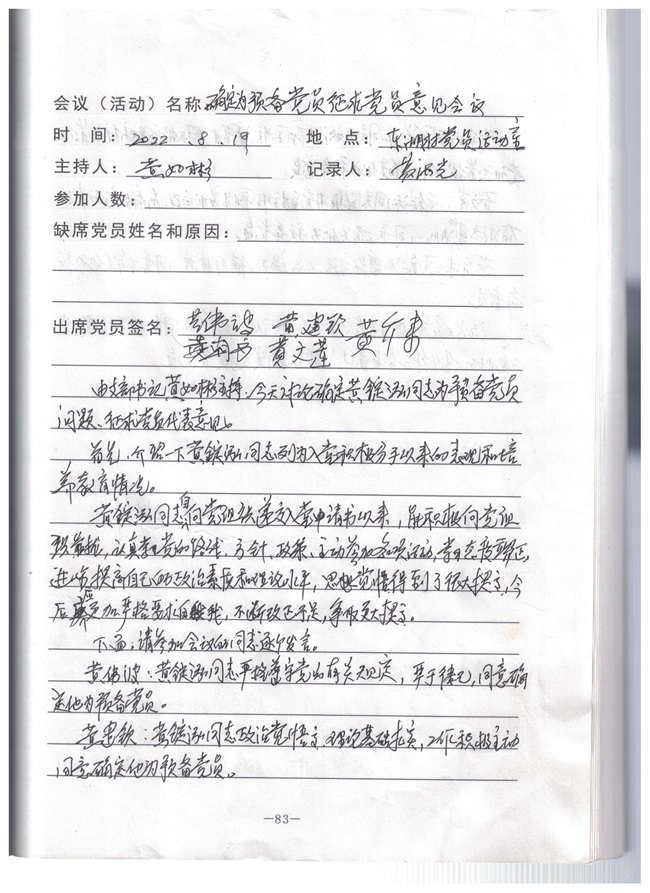 会议（活动）名称：确定为预备党员征求党员意见会议
时　间：2022.8.19　地　点：东湖村党员活动室
主持人：黄如彬　记录人：黄
参加人数：
缺席党员姓名和原因：
出席党员签名：黄伟波 黄建钦 黄介来
黄文莲
由支部书记黄如彬主持，今天讨论确定黄锭泓同志为预备党员
问题、征求党员代表意见。
首先，介绍一下黄锭泓同志列为入党积极分子以来的表现和培
养教育情况。
黄锭泓同志自向党组织递交入党申请书以来，能积极向党组
织靠拢，认真学习党的路线、方针、政策、主动参加各类活动，学习态度端正，
进一步提高自己的政治素质和理论水平，思想觉悟得到了很大提高，今
后应更加严格要求自我，不断改正不足，争取更大提高。
下面：请参加会议的同志逐个发言。
黄伟波：黄锭泓同志严格遵守党的有关规定，严于律己，同意确
定他为预备党员。
黄建钦：黄锭泓同志政治觉悟高、理论基础扎实，工作积极主动
同意确定他为预备党员。
—83—